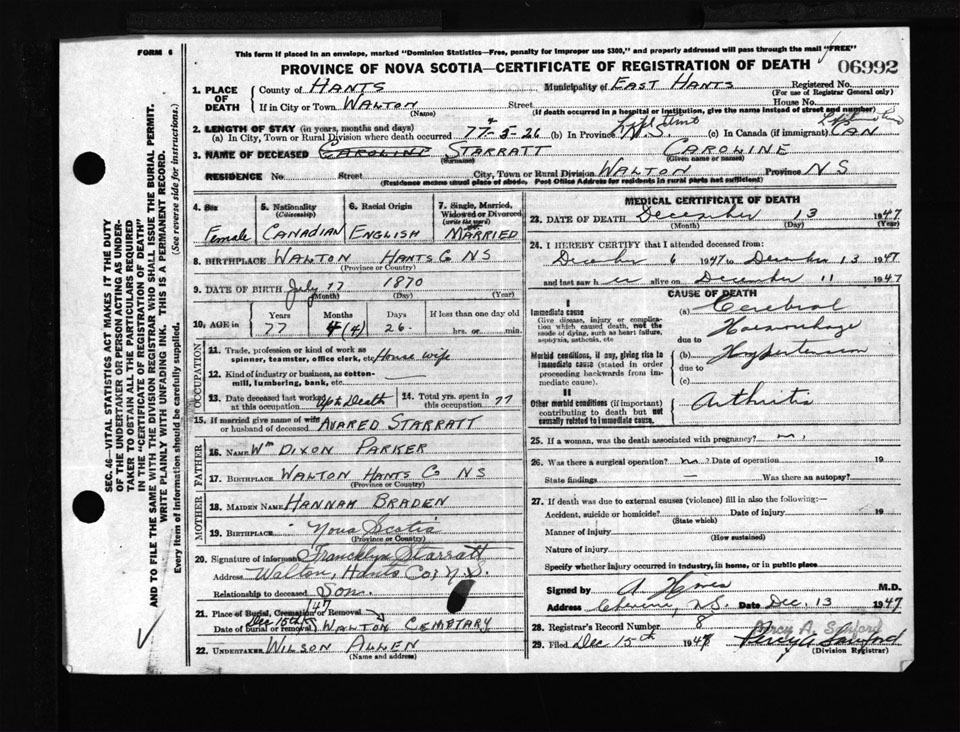 FORM 6
This form if placed in an envelope, marked "Dominion Statistics—Free, penalty for improper use $300," and properly addressed will pass through the mail "FREE"
PROVINCE OF NOVA SCOTIA—CERTIFICATE OF REGISTRATION OF DEATH
06992
1. PLACE OF DEATH
County of HANTS
Municipality of EAST HANTS
Registered No.
(For use of Registrar General only)
If in City or Town WALTON
(Name)
Street
House No.
(If death occurred in a hospital or institution, give the name instead of street and number)
2. LENGTH OF STAY (in years, months and days)
(a) In City, Town or Rural Division where death occurred 77-4-26 (b) In Province N.S. (c) In Canada (if immigrant) CAN
3. NAME OF DECEASED CAROLINE STARRATT CAROLINE
(Surname) (Given name or names)
RESIDENCE No. Street City, Town or Rural Division WALTON Province NS
(Residence means usual place of abode. Post Office Address for residents in rural parts not sufficient)
4. Sex
Female
5. Nationality
(Citizenship)
CANADIAN
6. Racial Origin
ENGLISH
7. Single, Married, Widowed or Divorced
(write the word)
MARRIED
8. BIRTHPLACE WALTON HANTS Co NS
(Province or Country)
9. DATE OF BIRTH July 17 1870
(Month) (Day) (Year)
10. AGE in
Years Months Days If less than one day old
77 4 (4) 26 hrs. or min.
OCCUPATION
11. Trade, profession or kind of work as spinner, teamster, office clerk, etc. House wife
12. Kind of industry or business, as cotton-mill, lumbering, bank, etc.
13. Date deceased last worked at this occupation Up to Death
14. Total yrs. spent in this occupation 77
15. If married give name of wife or husband of deceased AVARED STARRATT
FATHER
16. NAME Wm DIXON PARKER
17. BIRTHPLACE WALTON HANTS Co NS
(Province or Country)
MOTHER
18. MAIDEN NAME HANNAH BRADEN
19. BIRTHPLACE Nova Scotia
(Province or Country)
20. Signature of informant Francklyn Starratt
Address Walton, Hants Co. N.S.
Relationship to deceased Son.
21. Place of Burial, Cremation or Removal
Date of burial or removal Dec 15th 47 WALTON CEMETARY
22. UNDERTAKER WILSON ALLEN
(Name and address)
MEDICAL CERTIFICATE OF DEATH
23. DATE OF DEATH December 13 1947
(Month) (Day) (Year)
24. I HEREBY CERTIFY that I attended deceased from:
December 6 1947 to December 13 1947
and last saw her alive on December 11 1947
CAUSE OF DEATH
I
Immediate cause
Give disease, injury or complication which caused death, not the mode of dying, such as heart failure, asphyxia, asthenia, etc
(a) Cerebral
Haemorrhage
due to
Morbid conditions, if any, giving rise to immediate cause (stated in order proceeding backwards from immediate cause).
(b) Hypertension
due to
(c)
II
Other morbid conditions (if important) contributing to death but not causally related to immediate cause.
Arthritis
25. If a woman, was the death associated with pregnancy? no
26. Was there a surgical operation? no Date of operation 19
State findings — Was there an autopsy?
27. If death was due to external causes (violence) fill in also the following:—
Accident, suicide or homicide? Date of injury 19
(State which)
Manner of injury
(How sustained)
Nature of injury
Specify whether injury occurred in industry, in home, or in public place
Signed by M.D.
Address N.S. Date Dec. 13 1947
28. Registrar's Record Number 8
Percy A. Sanford
29. Filed Dec 15th 1947 Percy A Sanford
(Division Registrar)
SEC. 46—VITAL STATISTICS ACT MAKES IT THE DUTY
OF THE UNDERTAKER OR PERSON ACTING AS UNDER-
TAKER TO OBTAIN ALL THE PARTICULARS REQUIRED
IN THE "CERTIFICATE OF REGISTRATION OF DEATH"
AND TO FILE THE SAME WITH THE DIVISION REGISTRAR WHO SHALL ISSUE THE BURIAL PERMIT.
WRITE PLAINLY WITH UNFADING INK. THIS IS A PERMANENT RECORD.
Every item of information should be carefully supplied. (See reverse side for instructions.)